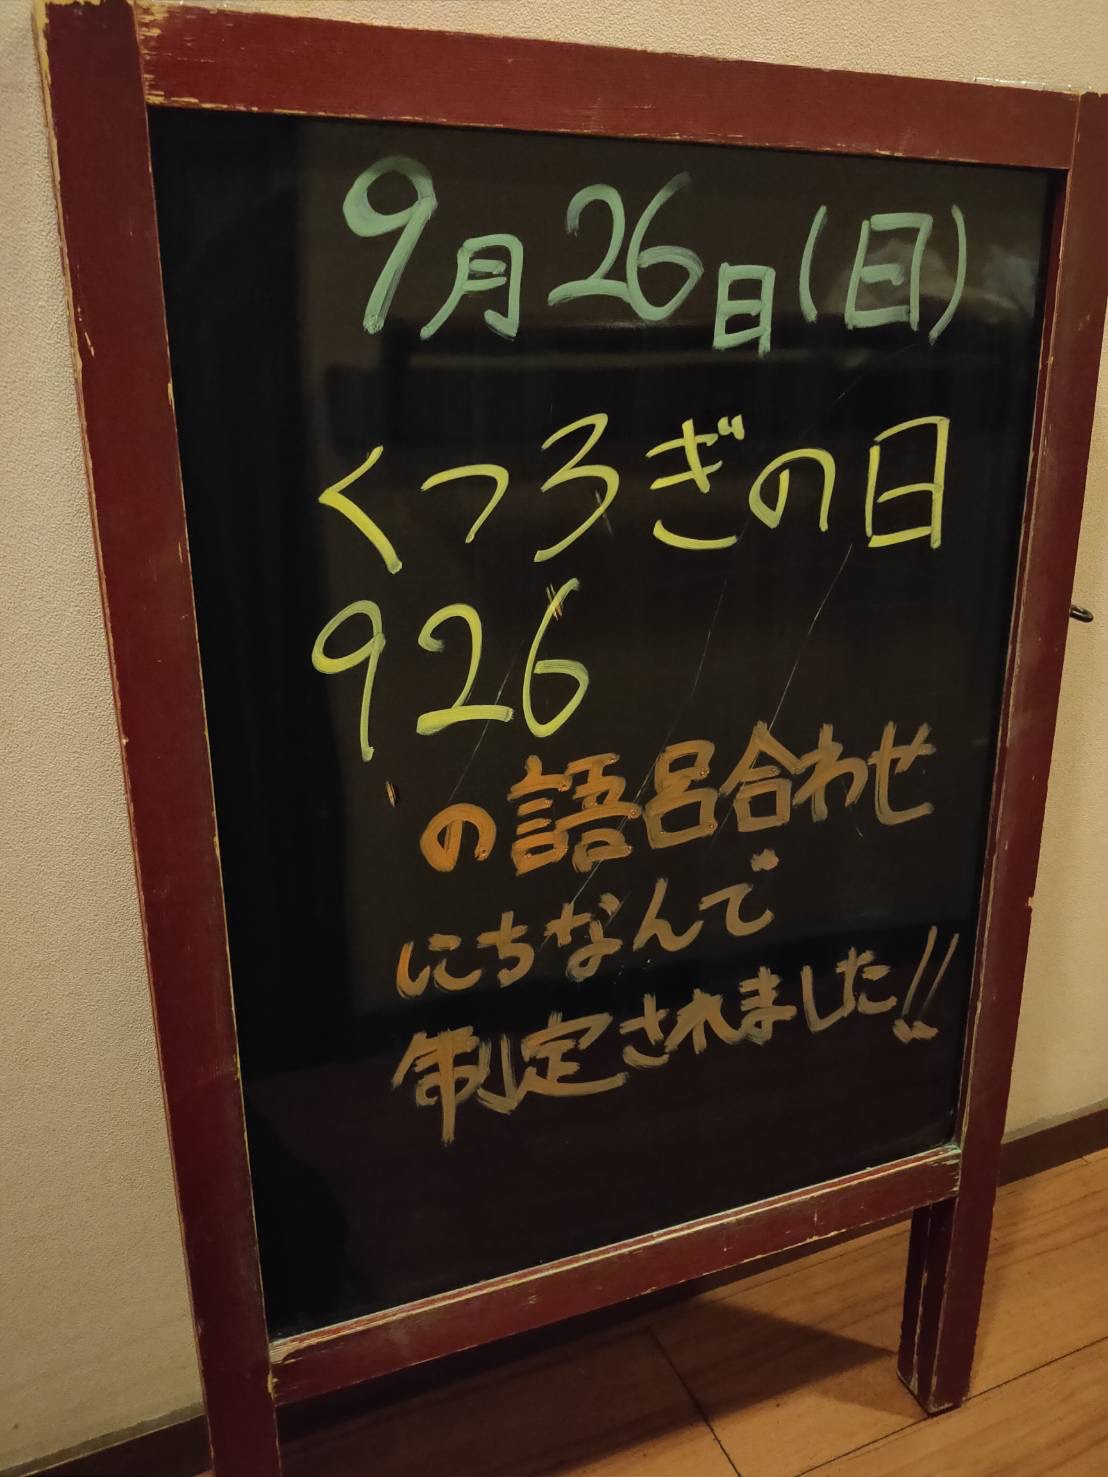 9月26日(日)
くつろぎの日
926
の語呂合わせ
にちなんで
制定されました!!